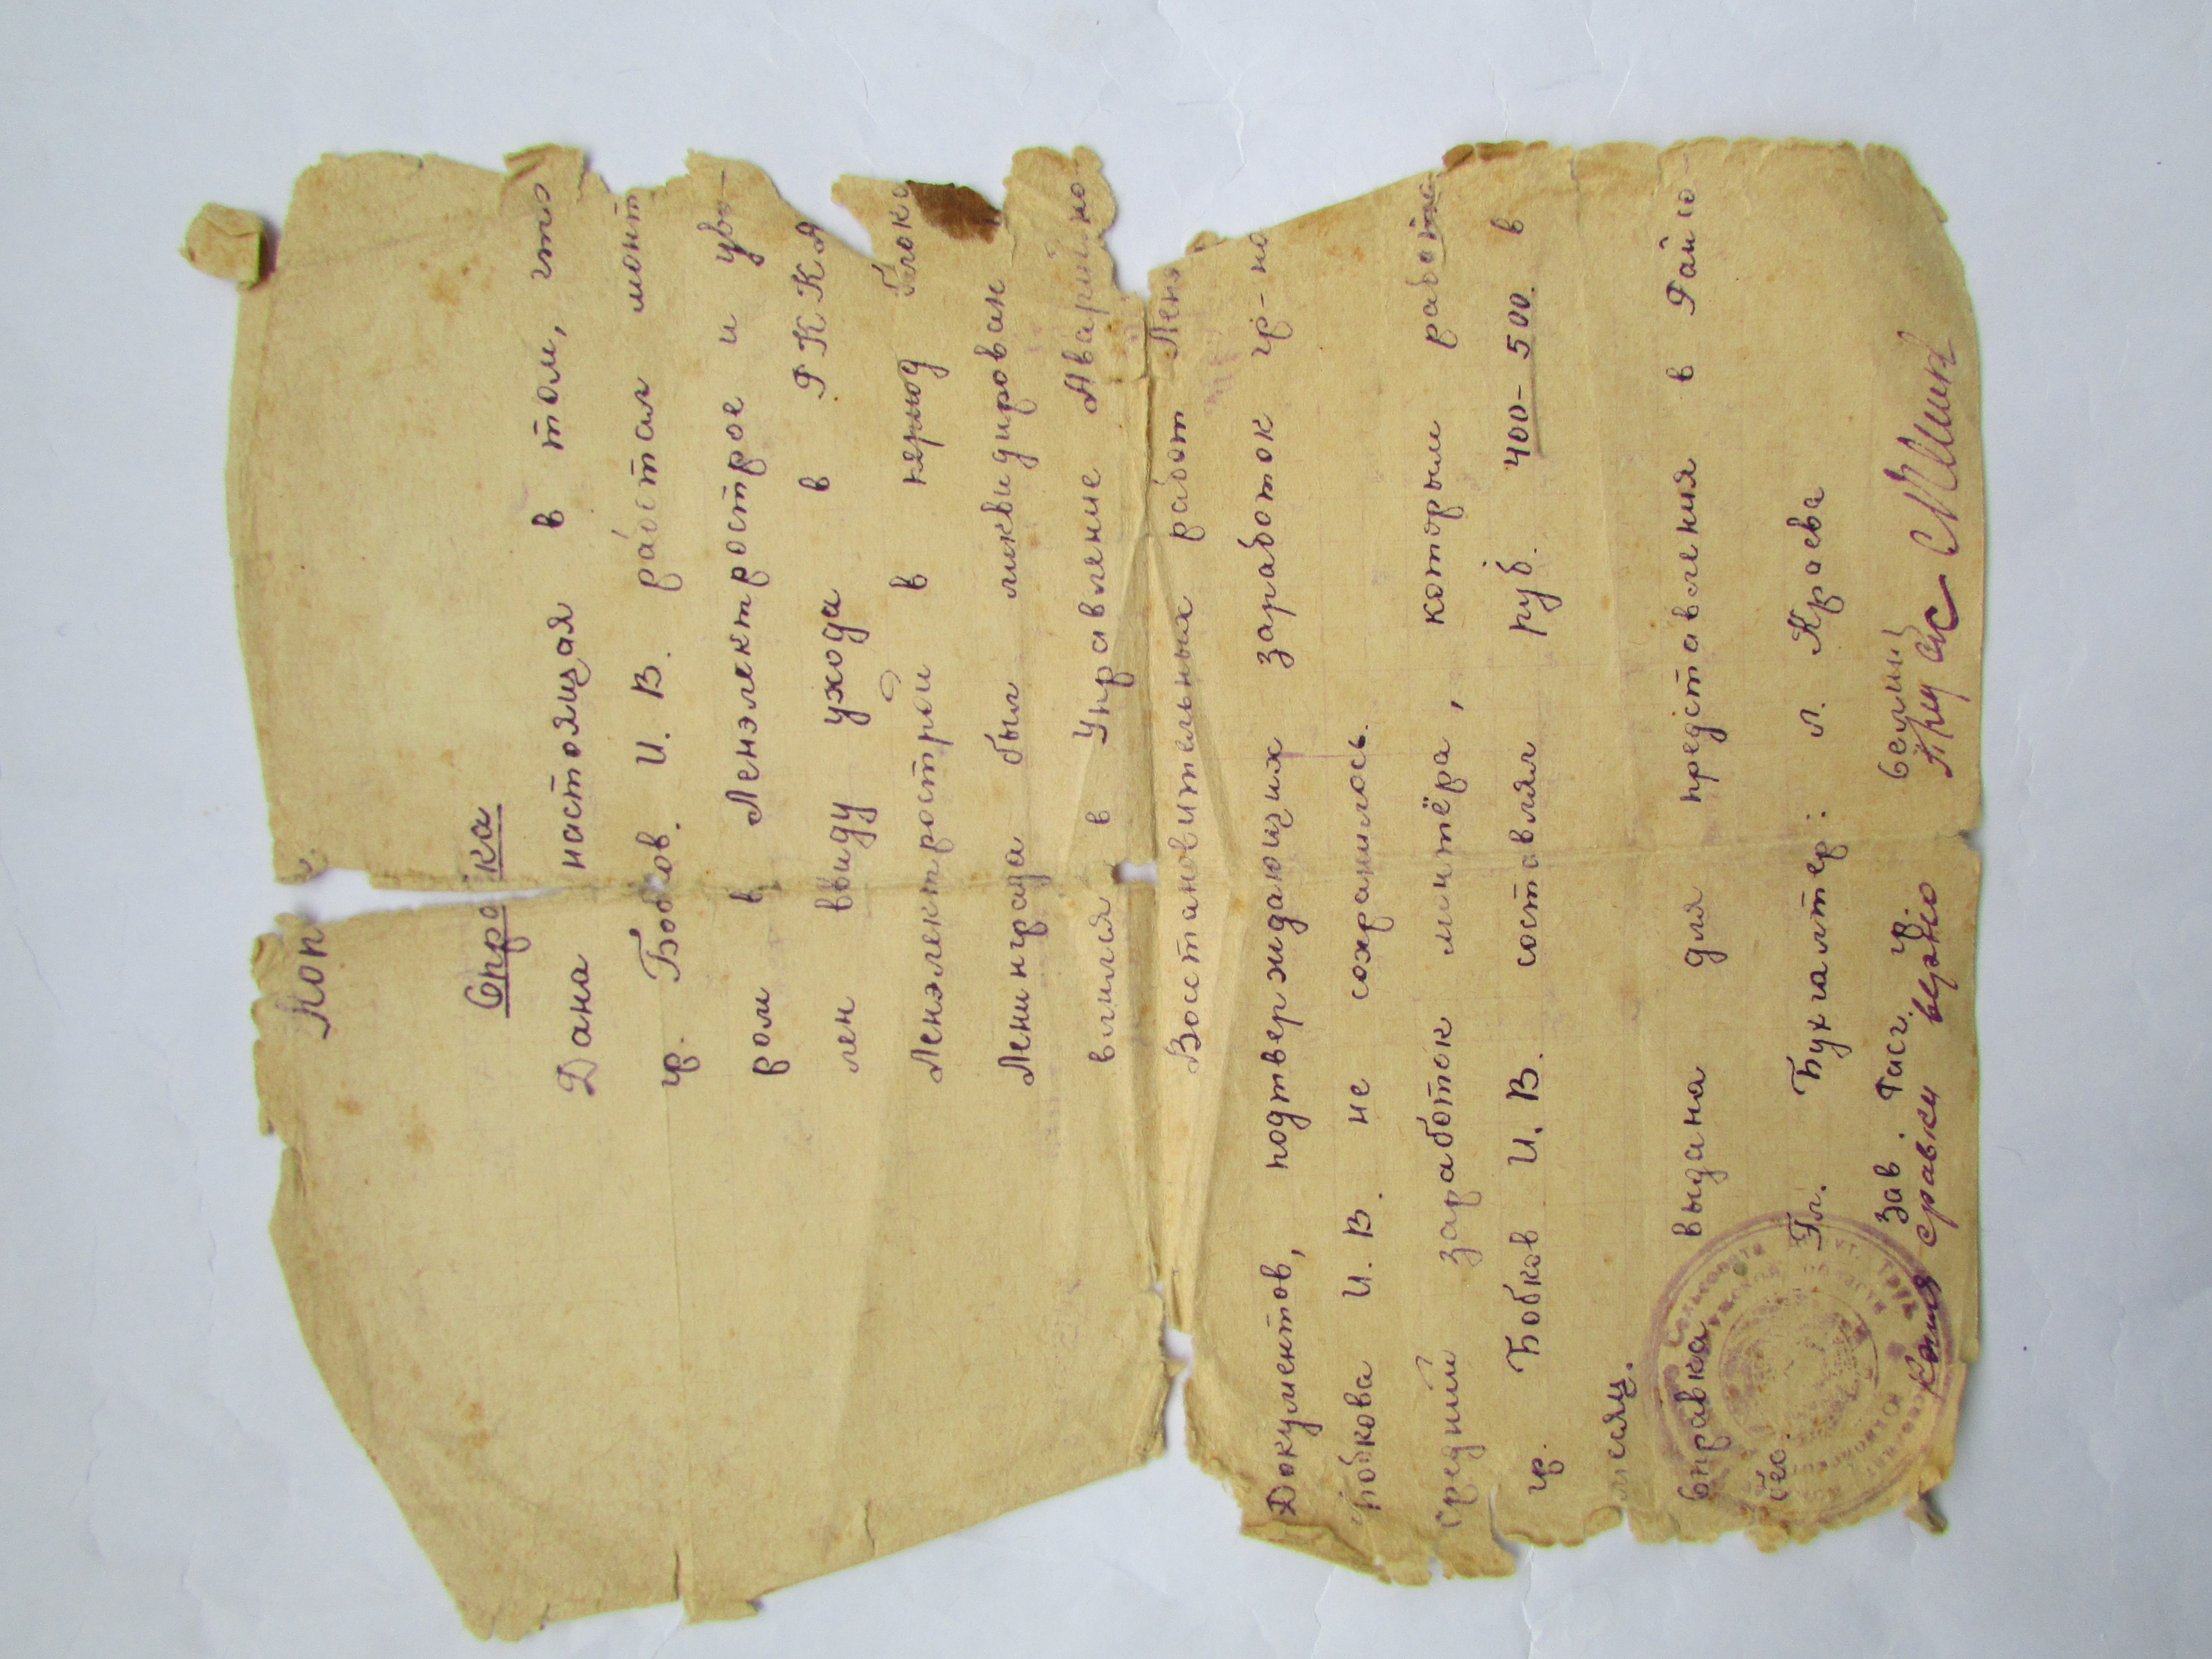 Коп
Справка
Дана настоящая в том, что
гр. Бобков. И. В. работал монт
ром в Ленэлектрострое и уво-
лен ввиду ухода в РККА
Ленэлектрострой в период блока
Ленинграда был ликвидирован
влился в Управление Аварийно-
Восстановительных работ Лен
Документов, подтверждающих заработок гр-на
Бобкова И. В. не сохранилось.
Средний заработок монтёра, которым работа
гр. Бобков И. В. составлял руб. 400-500. в
месяц.
Справка выдана для представления в Райсо-
бес.
Гл. Бухгалтер: л. Краева
Зав. Расч. гр.
Копия справки верно